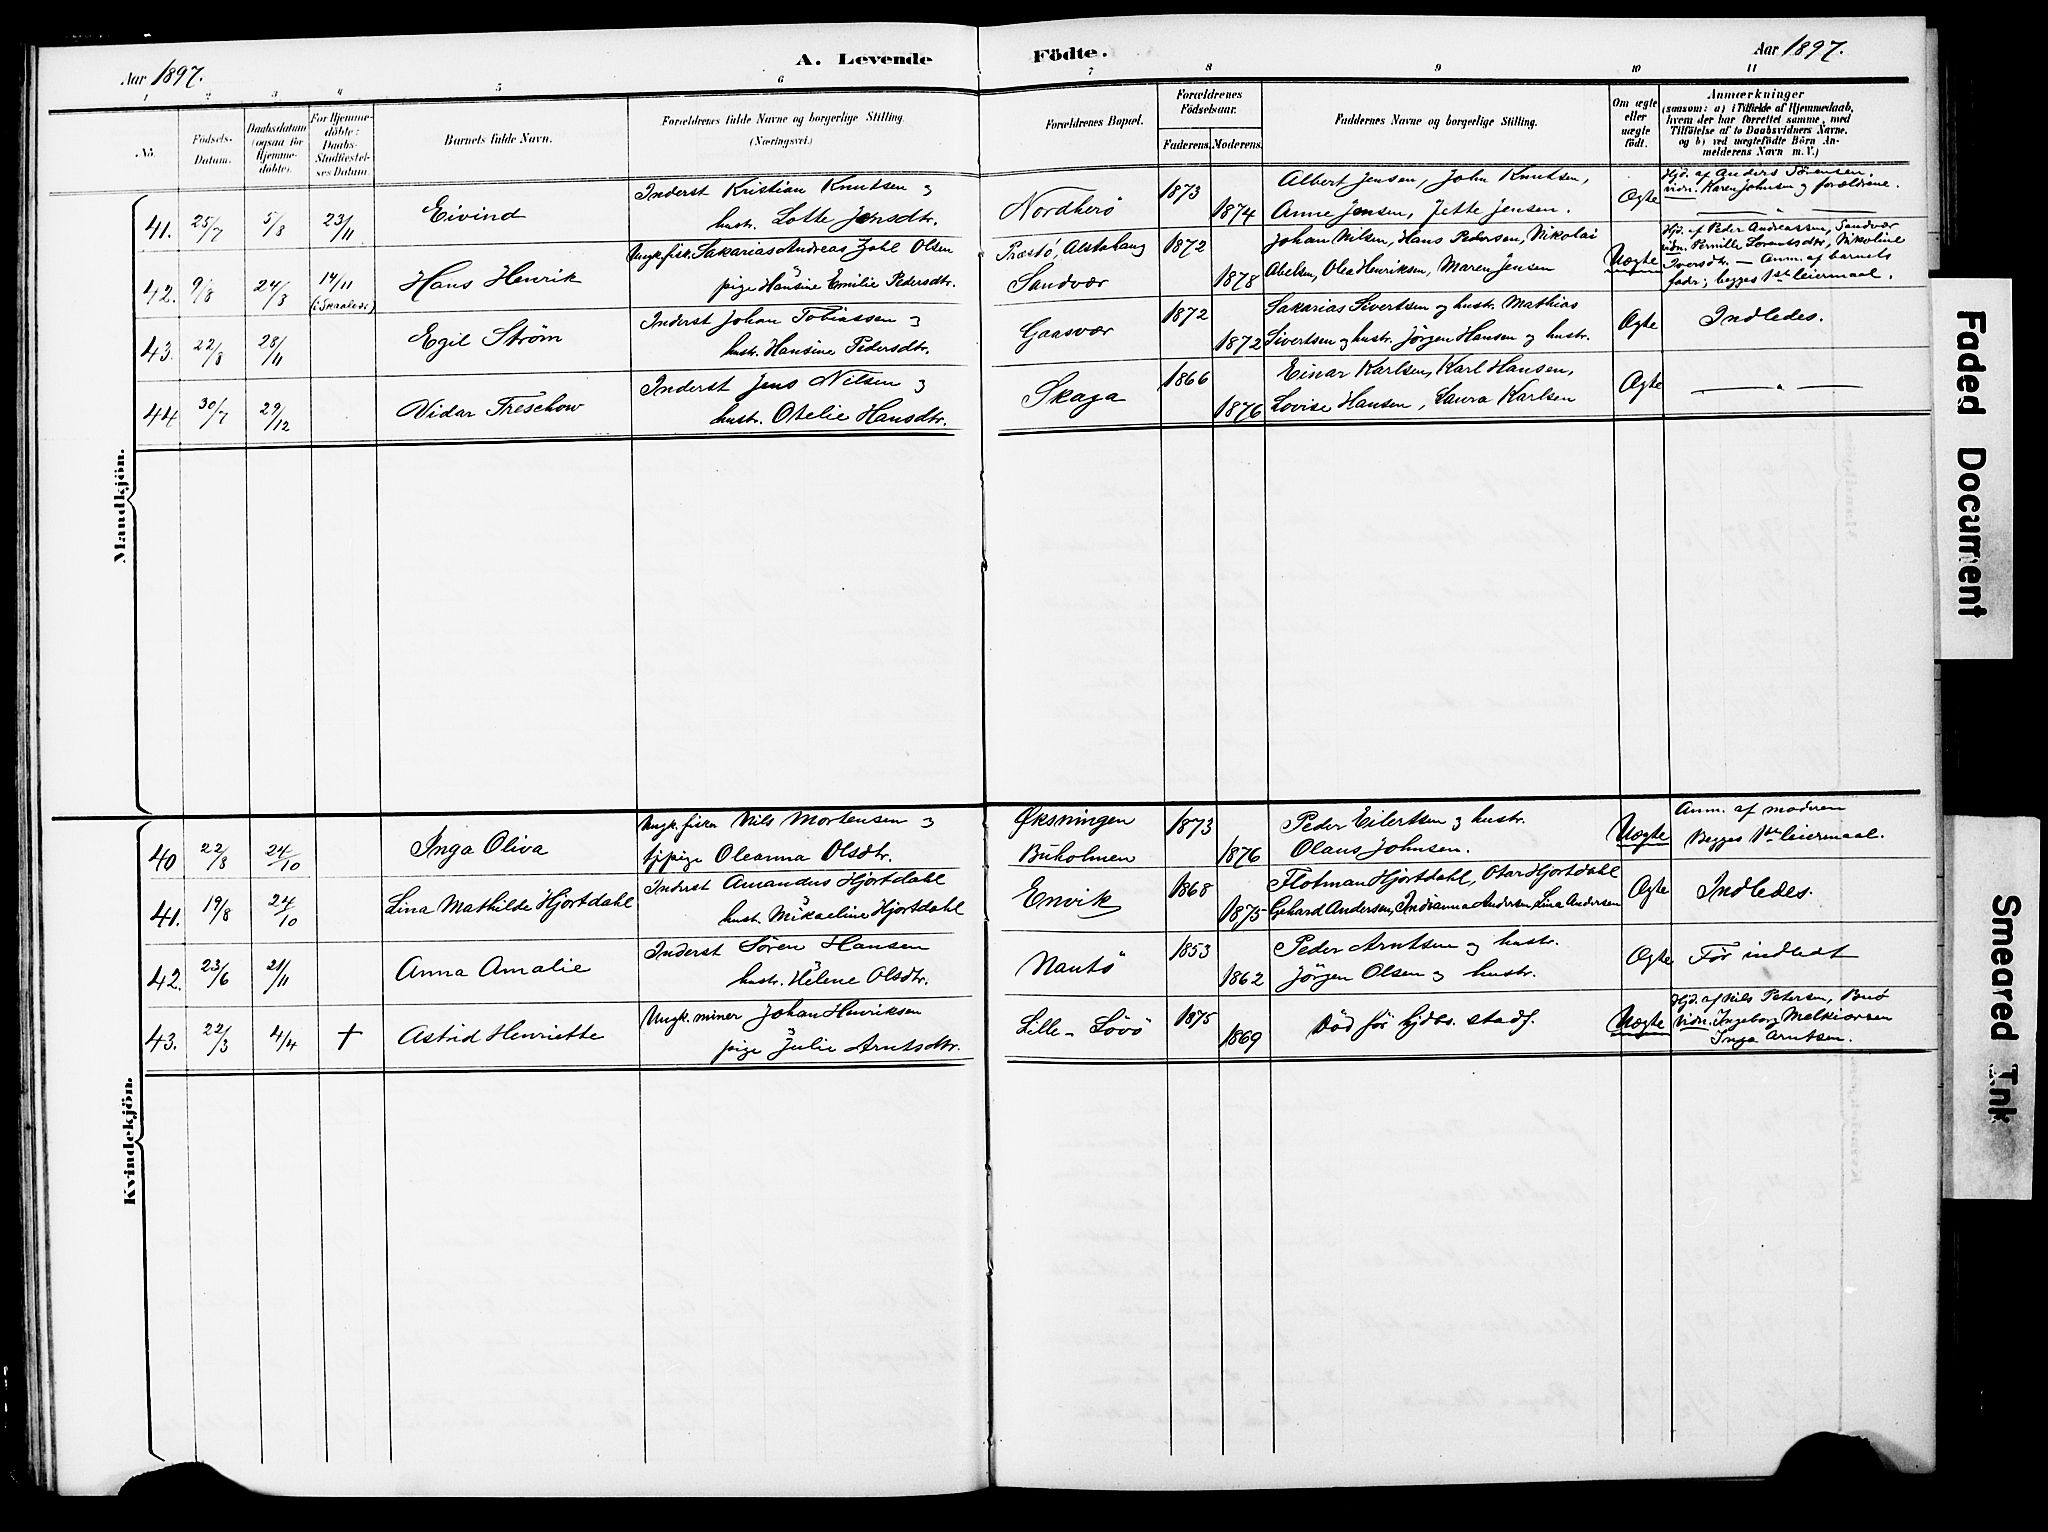 Aar 1897.
A. Levende Födte.
Aar 1897.
1 2 3 4 5 6 7 8 9 10 11
No.
Födsels-
Datum.
Daabsdatum
(ogsaa for
Hjemme-
döbte).
For Hjemme-
döbte:
Daabs-
Stadfæstel-
ses Datum.
Barnets fulde Navn.
Forældrenes fulde Navne og borgerlige Stilling.
(Næringsvei.)
Forældrenes Bopæl.
Forældrenes
Födselsaar.
Faderens.
Moderens.
Faddernes Navne og borgerlige Stilling.
Om ægte
eller
uægte
födt.
Anmærkninger
(saasom: a) i Tilfælde af Hjemmedaab,
hvem der har forrettet samme, med
Tilföielse af to Daabsvidners Navne.
og b) ved uægtefödte Börn An-
melderens Navn m. V.)
Mandkjön.
41. 25/7 5/8 23/11 Eivind
Inderst Kristian Knutsen og
hustr. Lotte Jensdtr.
Nordherö
1873
1874
Albert Jensen, John Knutsen,
Anne Jensen, Jette Jensen.
Ægte
Hjd. af Anders Sörensen.
vidn. Karen Johnsen og forældrene.
— " —
42. 9/8 24/3 14/11
Hans Henrik
Ungk. fisk. Sakarias Andreas Zahl Olsen
pige Hansine Emilie Pedersdtr.
Præstö, Alstahaug
Sandvær
1872
1878
Johan Nilsen, Hans Pedersen, Nikolai
Abelsen, Olea Henriksen, Maren Jensen
Uægte
Hjd. af Peder Andreassen, Sandvær
vidn. Pernille Lorentsdtr, Nikoline
Iversdtr. — Anm. af barnets
fader; begges 1ste leiermaal.
43. 22/8 28/11 Egil Strøm
Inderst Johan Tobiassen og
hustr. Hansine Pedersdtr.
Gaasvær
1872
1872
Sakarias Sivertsen og hustr. Mathias
Sivertsen og hustr. Jörgen Hansen og hustr.
Ægte
Indledes.
44. 30/7 29/12 Vidar Treschow
Inderst Jens Nilsen og
hustr. Otelie Hansdtr.
Skaga
1866
1876
Einar Karlsen, Karl Hansen,
Lovise Hansen, Laura Karlsen
Ægte
— " —
Kvindekjön.
40 22/8 24/10 Inga Oliva
Ungk. fisker Nils Mortensen og
tjpige Oleanna Olsdtr.
Øksningen
Buholmen
1873
1876
Peder Eilertsen og hustr.
Olaus Johnsen.
Uægte
Anm. af moderen
Begges 1ste leiermaal.
41. 19/8 24/10 Lina Mathilde Hjortdahl
Inderst Amandus Hjortdahl
hust. Mikaeline Hjortdahl
Envik
1868
1875
Flotman Hjortdahl, Otar Hjortdahl
Gehard Andersen, Indianna Andersen, Lina Andersen
Ægte
Indledes.
42. 23/6 21/11 Anna Amalie
Inderst Sören Hansen
hustr. Helene Olsdtr.
Nautö
1853
1862
Peder Arntsen og hustr.
Jörgen Olsen og hustr.
Ægte
Før indledt
43. 22/3 4/4 † Astrid Henriette
Ungk. miner Johan Henriksen
pige Julie Arntsdtr.
Lille-Lövö
1875
1869
Död för hjdbs. stadf.
Uægte
Hjd. af Nils Petersen, Buö
vidn. Ingeborg Melkiorsen
Inga Arntsen.
Faded Document
Smeared Ink